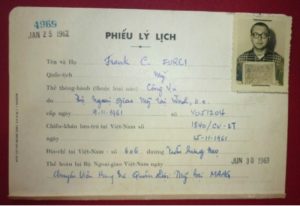 4969
JAN 25 1962
PHIẾU LÝ LỊCH
Tên và Họ Frank C. FURCI
Quốc-tịch Mỹ
Thẻ thông-hành (thuộc loại nào) Công Vụ
do Bộ Ngoại Giao Mỹ tại Wash, D.C.
cấp ngày 9-11-1961 số Y051204
Chiếu-khán lưu-trú tại Việt-Nam số
ngày 25-11-1961
Địa-chỉ tại Việt-Nam : số 606 đường Trần Hưng Đạo
Thẻ hoàn lại Bộ Ngoại-Giao Việt-Nam ngày JUN 10 1963
Chuyên Viên